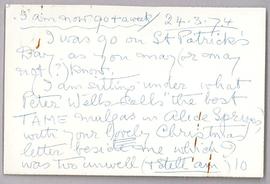 I am now 90 + a week / 24.3.74
I was 90 on St Patrick's
Day as you may or may
not (?) know.
I am sitting under what
Peter Wells calls "the best
TAME mulga in Alice Springs
with your lovely Christmas
letter beside me which I
was too unwell (+ still am) to